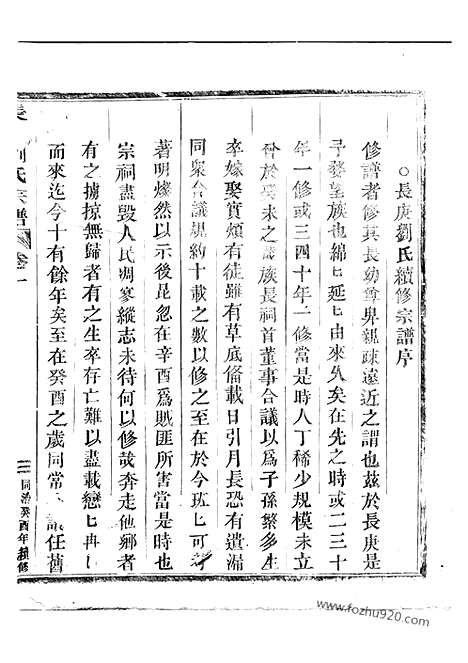 ○長庚劉氏續修宗譜序
修譜者修其長幼尊卑親疎遠近之謂也茲於長庚是
予婺望族也綿匕延匕由來久矣在先之時或二三十
年一修或三四十年一修當是時人丁稀少規模未立
於癸未之歲族長祠首董事合議以爲子孫繁多生
卒嫁娶實煩有徒雖有草底俻載日引月長恐有遺漏
同衆合議規約十載之數以修之至在於今班匕可考
著明燦然以示後昆忽在辛酉爲賊匪所害當是時也
宗祠盡毀人民凋寥縱志未待何以修哉奔走他鄉者
有之擄掠無歸者有之生卒存亡難以盡載戀匕冉匕
而來迄今十有餘年矣至在癸酉之歲同常議任舊
長 劉氏宗譜 卷一
一 同治癸酉年續修
www.fozhu920.com